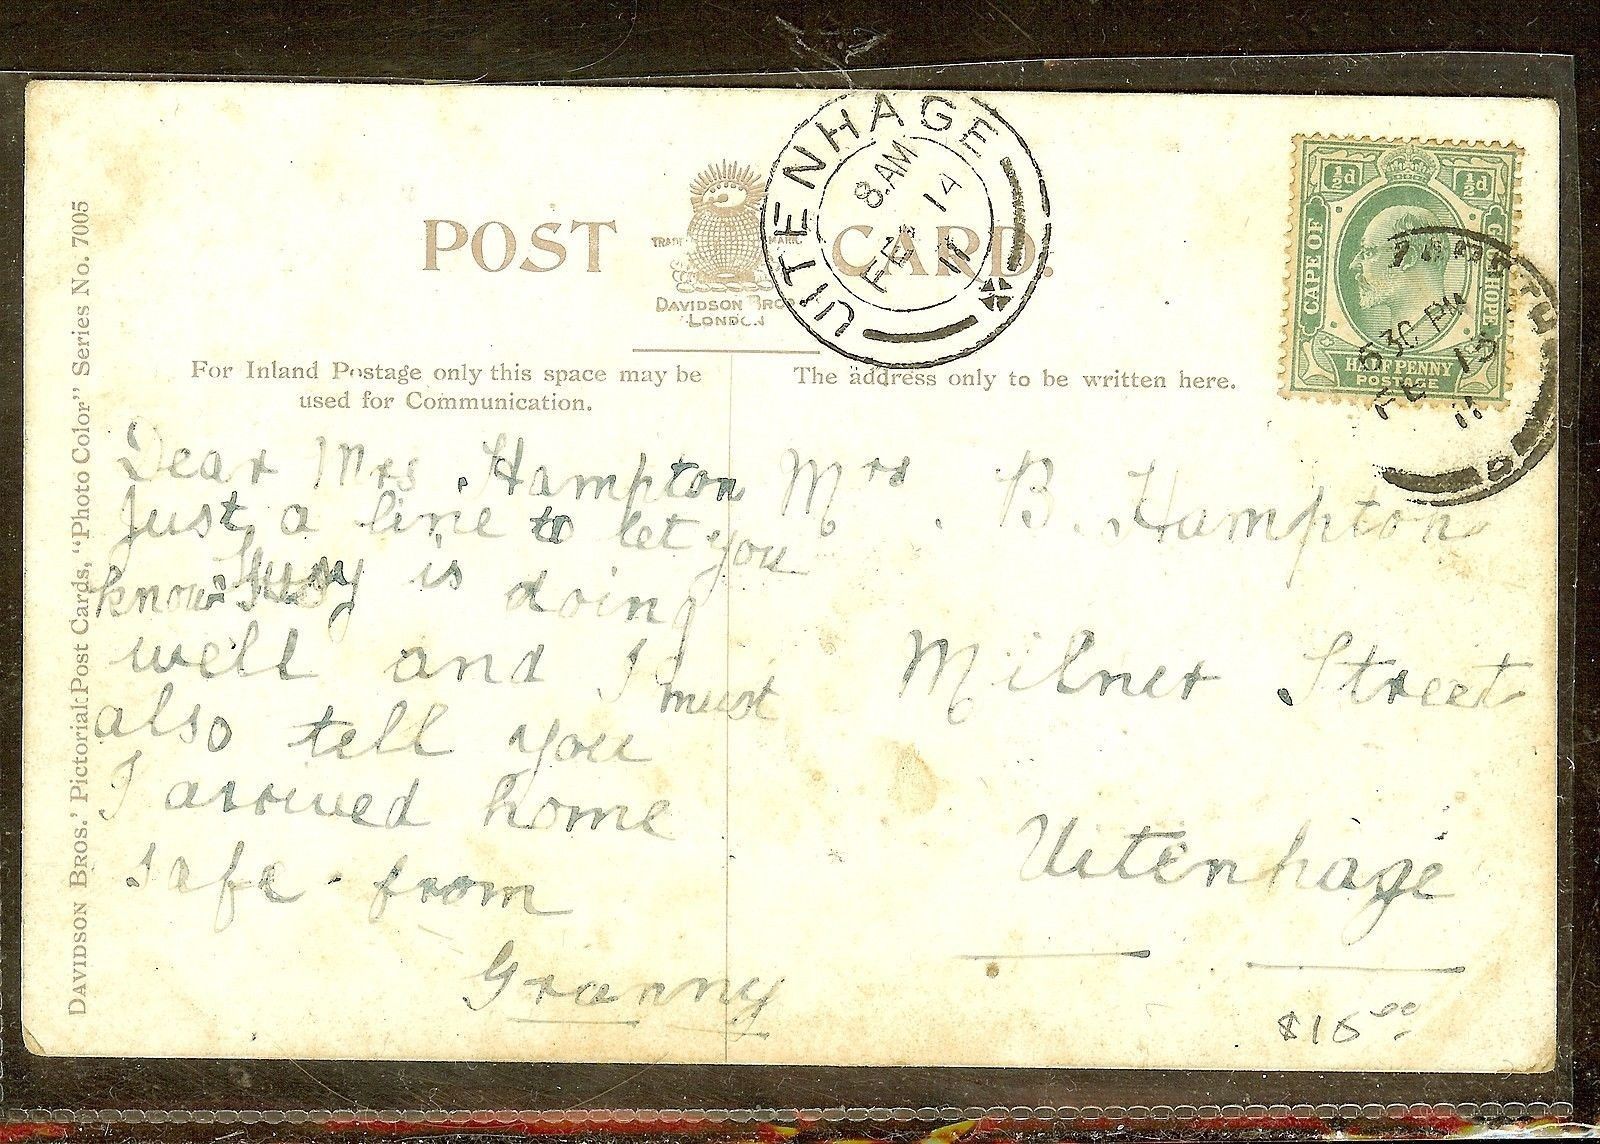 POST CARD.
TRADE MARK.
DAVIDSON BROS
LONDON
UITENHAGE
8. AM
FE 14
11
½d ½d
CAPE OF
HOPE
HALF PENNY
POSTAGE
6 30 PM
FE 13
11
For Inland Postage only this space may be
used for Communication.
The address only to be written here.
Dear Mrs Hampton
Just a line to let you
know is doing
well and I must
also tell you
I arrived home
safe. from
Granny
Mrs. B. Hampton
Milner Street
Uitenhage
$15.00
DAVIDSON BROS.' Pictorial Post Cards, "Photo Color" Series No. 7005